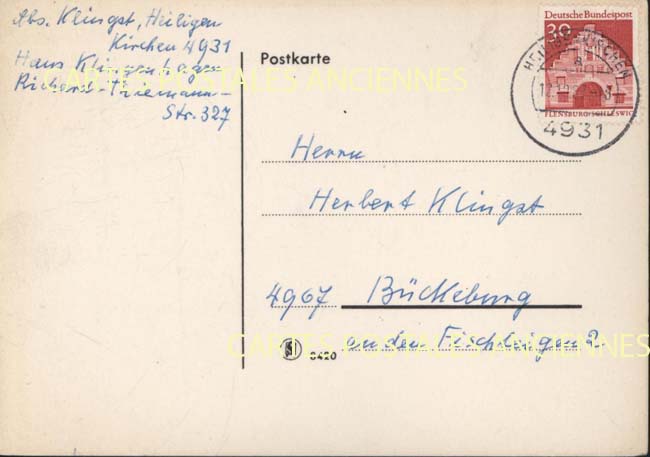 Abs. Klingst, Heiligen
Kirchen 4931
Haus Klingenhagen
Richard-Thiemann-
Str. 327
Postkarte
Deutsche Bundespost
30
FLENSBURG/SCHLESWIG
4931
Herrn
Herbert Klingst
4967 Bückeburg
an den Fischteichen 2
0420
CARTES POSTALES ANCIENNES
CARTES POSTALES ANCIENNES